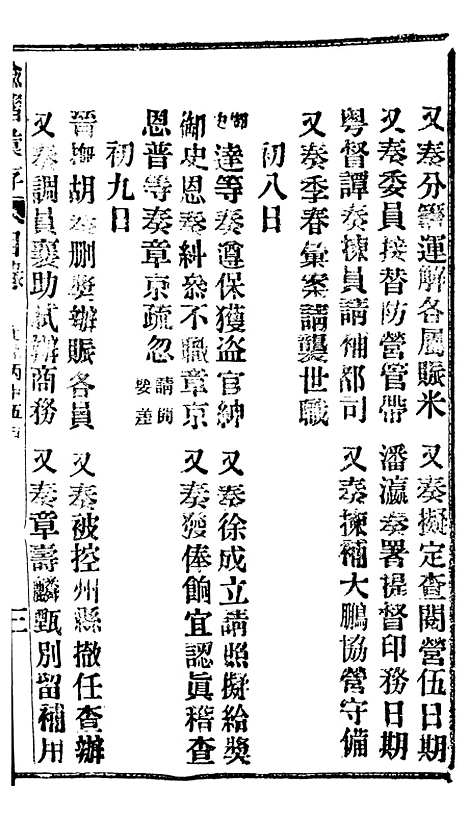 又奏分籌運解各屬賑米　又奏擬定查閱營伍日期
又奏委員接替防營管帶　潘瀛奏署提督印務日期
粵督譚奏揀員請補都司　又奏揀補大鵬協營守備
又奏季春彙案請襲世職
初八日
達等奏遵保獲盜官紳　又奏徐成立請照擬給獎
御史恩奏糾叅不職章京　又奏獲俸餉宜認眞稽查
恩普等奏章京疏忽請開要差
初九日
晉撫胡奏刪奬辦賑各員　又奏被控州縣撤任查辦
又奏調員襄助試辦商務　又奏章壽麟甄別留補用
諭摺彙存　目錄　三